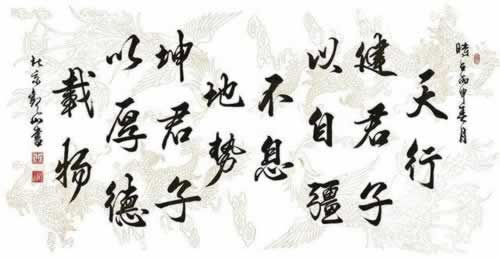 時在丙申春月
天行
健君子
以自彊
不息
地勢
坤君子
以厚德
載物
京山書